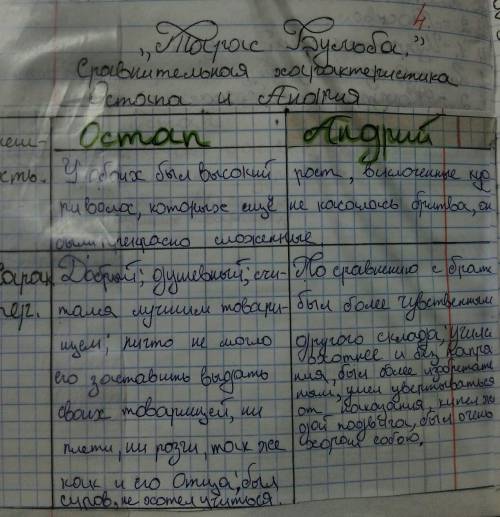 4
„Тарас Бульба."
Сравнительная характеристика
Остапа и Андрия
Остап Андрий
У обоих был высокий рост,
волос, которых ещё не касалась бритва,
были прекрасно сложенные
Добрый; душевный; счи-
тался лучшим товари-
щем; ничто не могло
его заставить выдать
своих товарищей, ни
плети, ни розги, так же
как и его Отца; был
суров, не хотел учиться.
По сравнению с брат
был более чувственным
другого склада; учился
охотнее и без напря
ния, был более изобретате
ным; умел увёртываться
от наказания,
подвига, был очень
хорош собою.